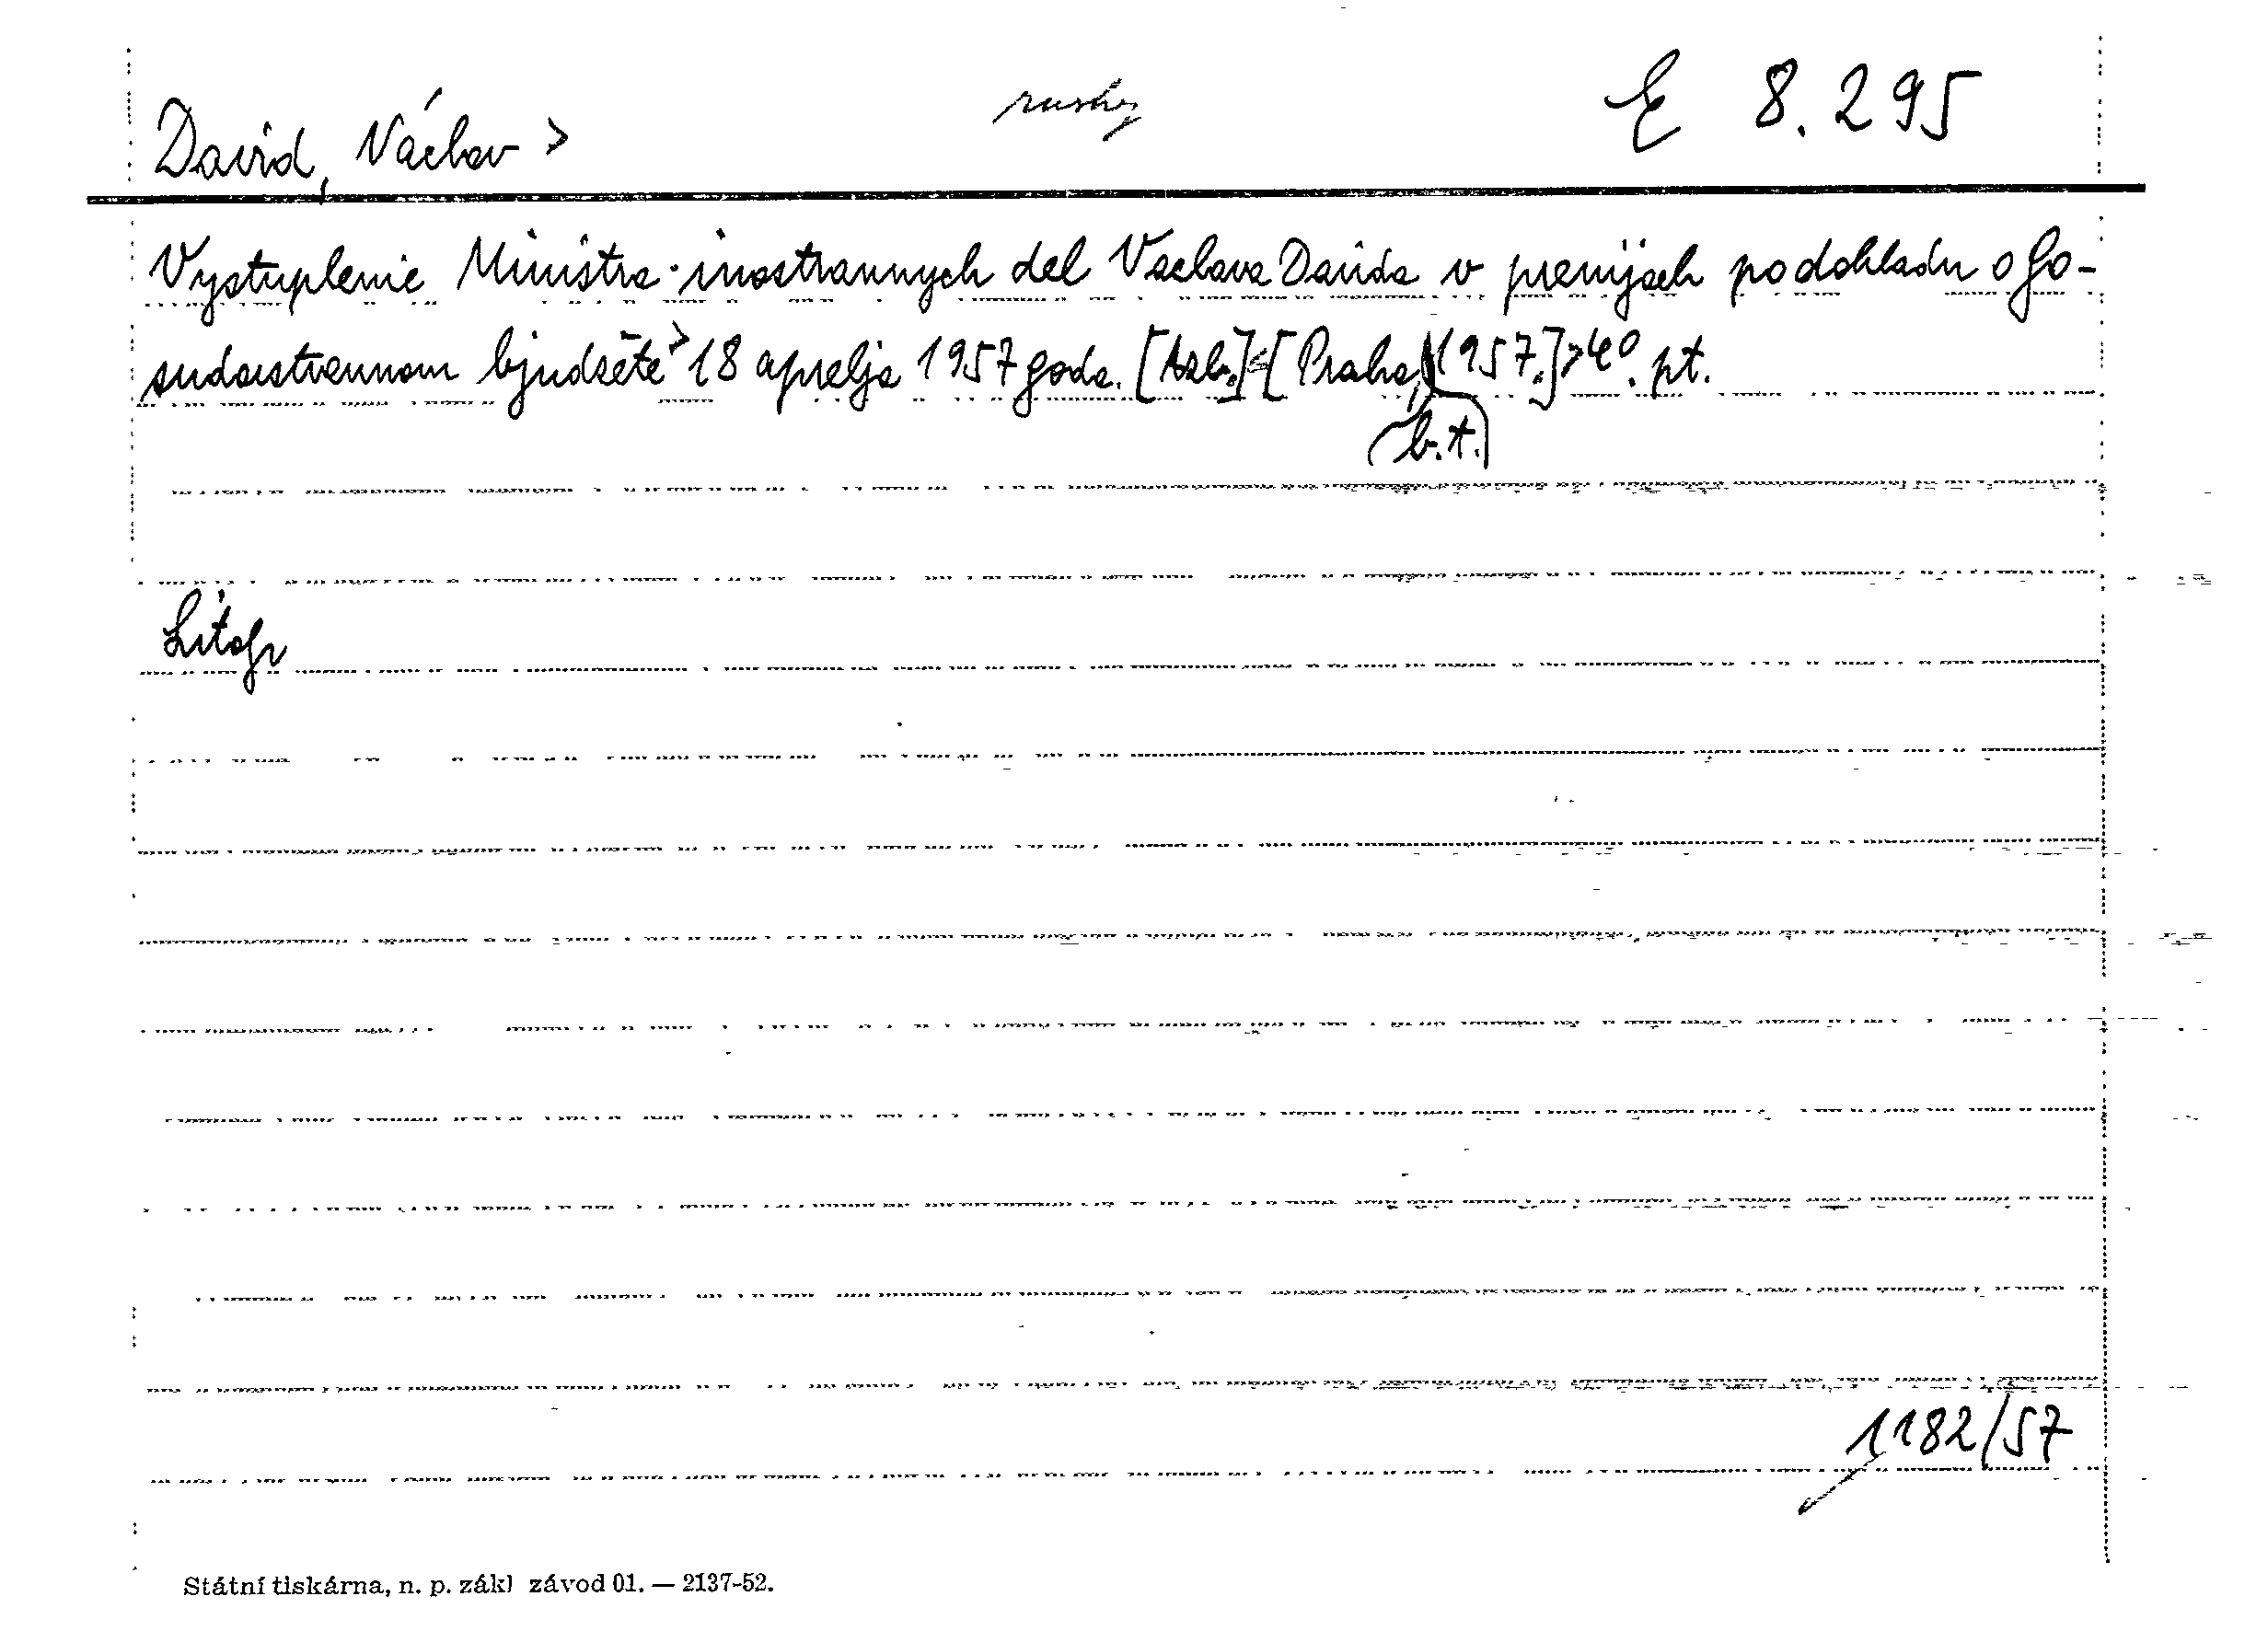 David, Václav > rusky E 8.295
Vystuplenie Ministra inostrannych del Vaclava Davida v prenijach po dokladu o go-
sudarstvennom bjudžete > 18 aprelja 1957 goda. [Azb.] < [Praha, 1957.] > 4°. pt.
(b.t.)
Litogr
1182/57
Státní tiskárna, n. p. zákl závod 01. — 2137-52.